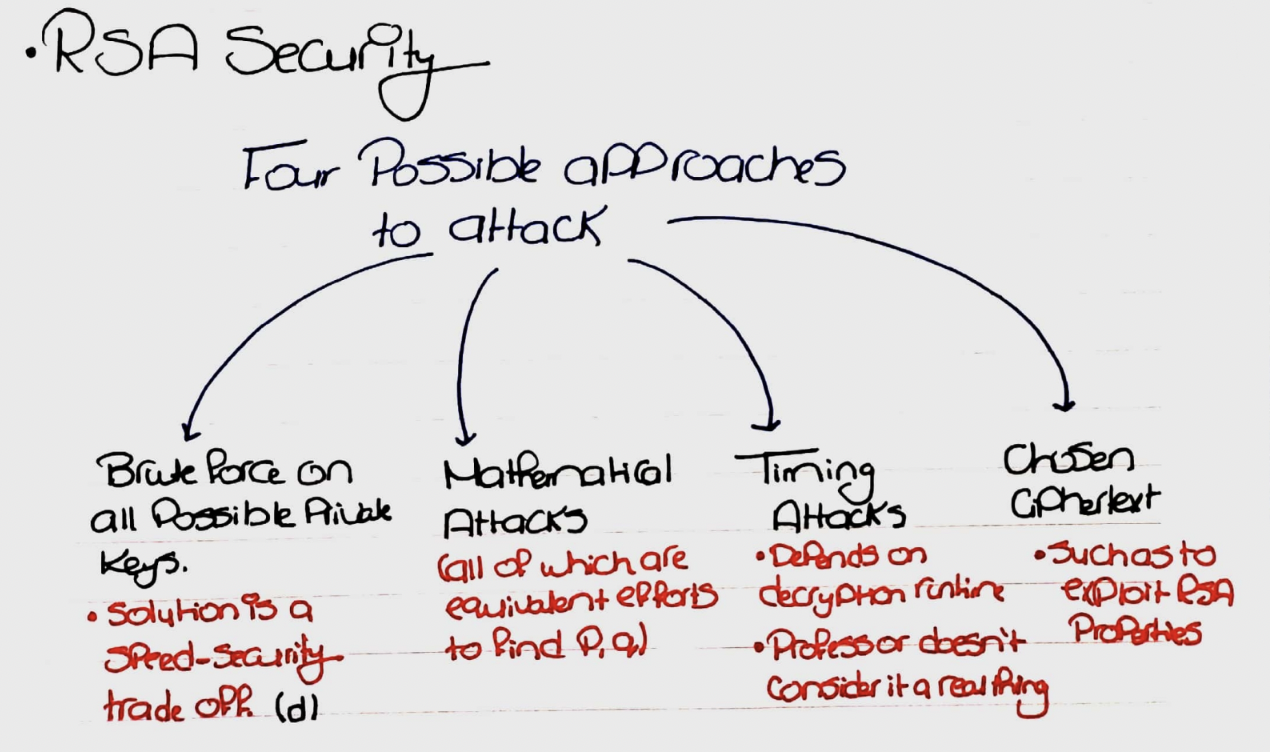 • RSA Security
Four Possible approaches
to attack
Brute force on
all Possible Private
Keys.
• Solution is a
speed-security
trade off. (d)
Mathematical
Attacks
(all of which are
equivalent efforts
to find P, q)
Timing
Attacks
• Depends on
decryption runtime
• Professor doesn't
consider it a real thing
Chosen
Ciphertext
• Such as to
exploit RSA
Properties